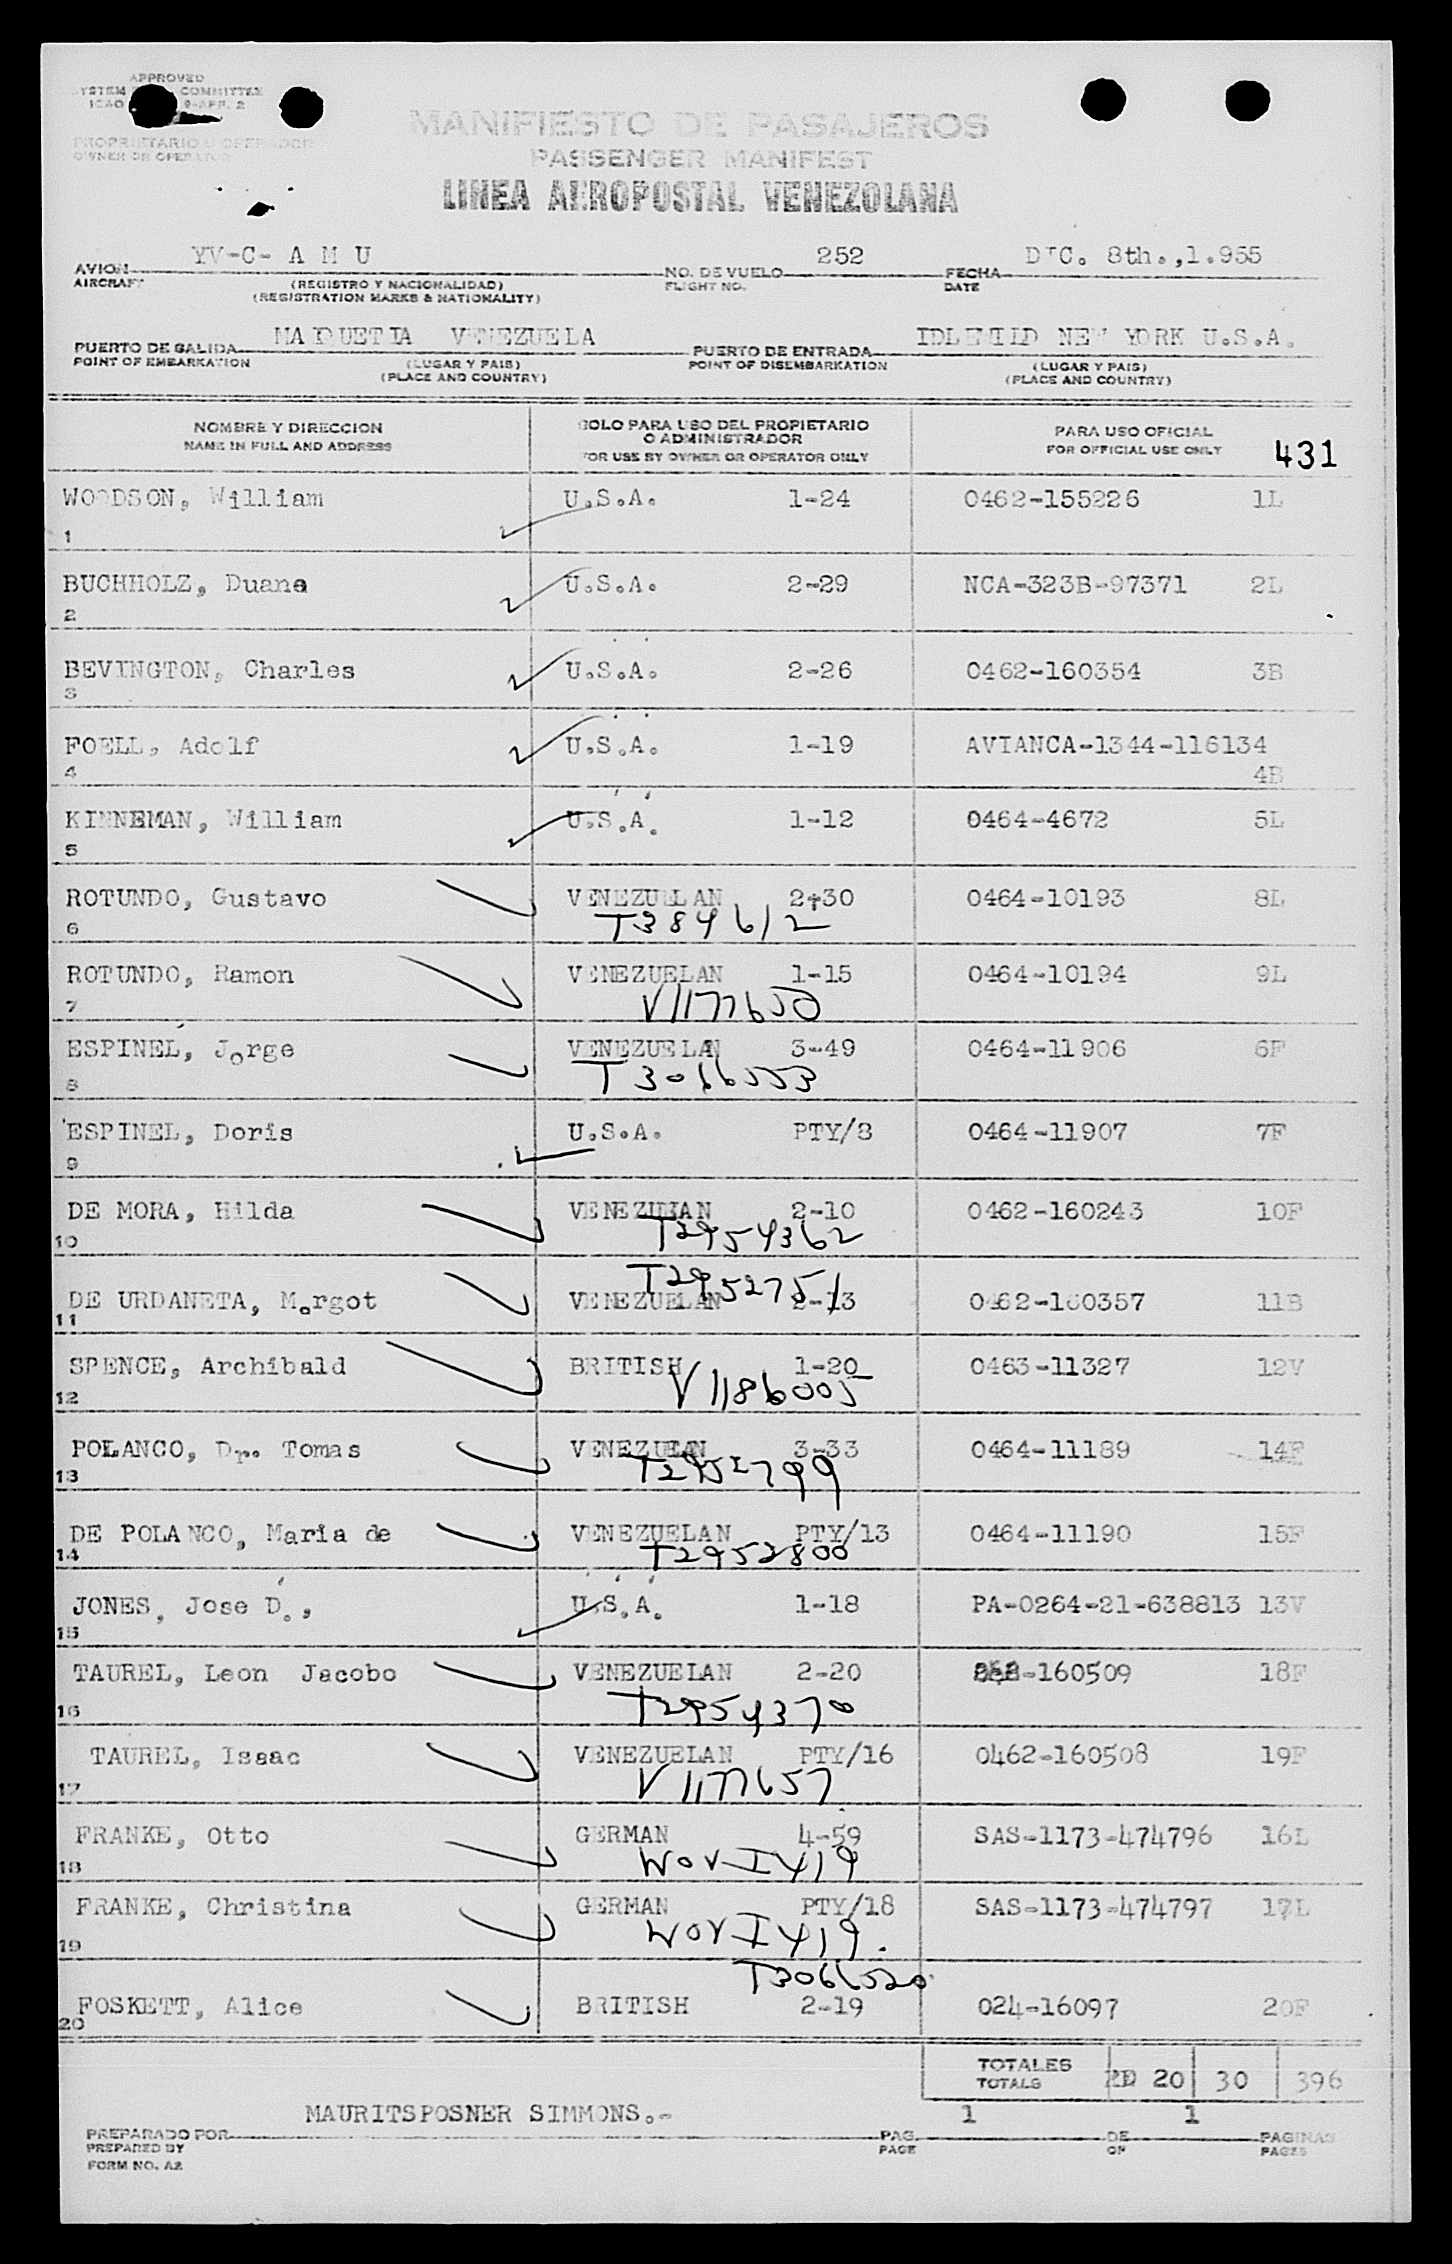 APPROVED
SYSTEM COMMITTEE
ICAO 9-APP. 2
PROPRIETARIO U OPERADOR
OWNER OR OPERATOR
MANIFIESTO DE PASAJEROS
PASSENGER MANIFEST
LINEA AEROPOSTAL VENEZOLANA
AVION YV-C- A M U NO. DE VUELO 252 FECHA DIC. 8th.,1.955
AIRCRAFT (REGISTRO Y NACIONALIDAD) FLIGHT NO. DATE
(REGISTRATION MARKS & NATIONALITY)
PUERTO DE SALIDA MAIQUETIA VENEZUELA PUERTO DE ENTRADA IDLEWILD NEW YORK U.S.A.
POINT OF EMBARKATION (LUGAR Y PAIS) POINT OF DISEMBARKATION (LUGAR Y PAIS)
(PLACE AND COUNTRY) (PLACE AND COUNTRY)
NOMBRE Y DIRECCION SOLO PARA USO DEL PROPIETARIO PARA USO OFICIAL
NAME IN FULL AND ADDRESS O ADMINISTRADOR FOR OFFICIAL USE ONLY 431
FOR USE BY OWNER OR OPERATOR ONLY
WOODSON, William U.S.A. 1-24 0462-155226 1L
1
BUCHHOLZ, Duane U.S.A. 2-29 NCA-323B-97371 2L
2
BEVINGTON, Charles U.S.A. 2-26 0462-160354 3B
3
FOELL, Adolf U.S.A. 1-19 AVIANCA-1344-116134
4 4B
KINNEMAN, William U.S.A. 1-12 0464-4672 5L
5
ROTUNDO, Gustavo VENEZUELAN 2-30 0464-10193 8L
6 T384612
ROTUNDO, Ramon VENEZUELAN 1-15 0464-10194 9L
7 V1177650
ESPINEL, Jorge VENEZUELAN 3-49 0464-11906 6F
8 T3066553
ESPINEL, Doris U.S.A. PTY/8 0464-11907 7F
9
DE MORA, Hilda VENEZUELAN 2-10 0462-160243 10F
10 T2954362
T2952751
DE URDANETA, Margot VENEZUELAN 2-13 0462-160357 11B
11
SPENCE, Archibald BRITISH 1-20 0463-11327 12V
12 V1186005
POLANCO, Dr. Tomas VENEZUELAN 3-33 0464-11189 14F
13 T2952799
DE POLANCO, Maria de VENEZUELAN PTY/13 0464-11190 15F
14 T2952800
JONES, Jose D., U.S.A. 1-18 PA-0264-21-638813 13V
15
TAUREL, Leon Jacobo VENEZUELAN 2-20 -160509 18F
16 T2954370
TAUREL, Isaac VENEZUELAN PTY/16 0462-160508 19F
17 V1177657
FRANKE, Otto GERMAN 4-59 SAS-1173-474796 16L
18 WOVI419
FRANKE, Christina GERMAN PTY/18 SAS-1173-474797 17L
19 WOVI419.
T3066520
FOSKETT, Alice BRITISH 2-19 024-16097 20F
20
TOTALES 20 30 396
TOTALS
MAURITSPOSNER SIMMONS.- 1 1
PREPARADO POR PAG. DE PAGINAS
PREPARED BY PAGE OF PAGES
FORM NO. A2